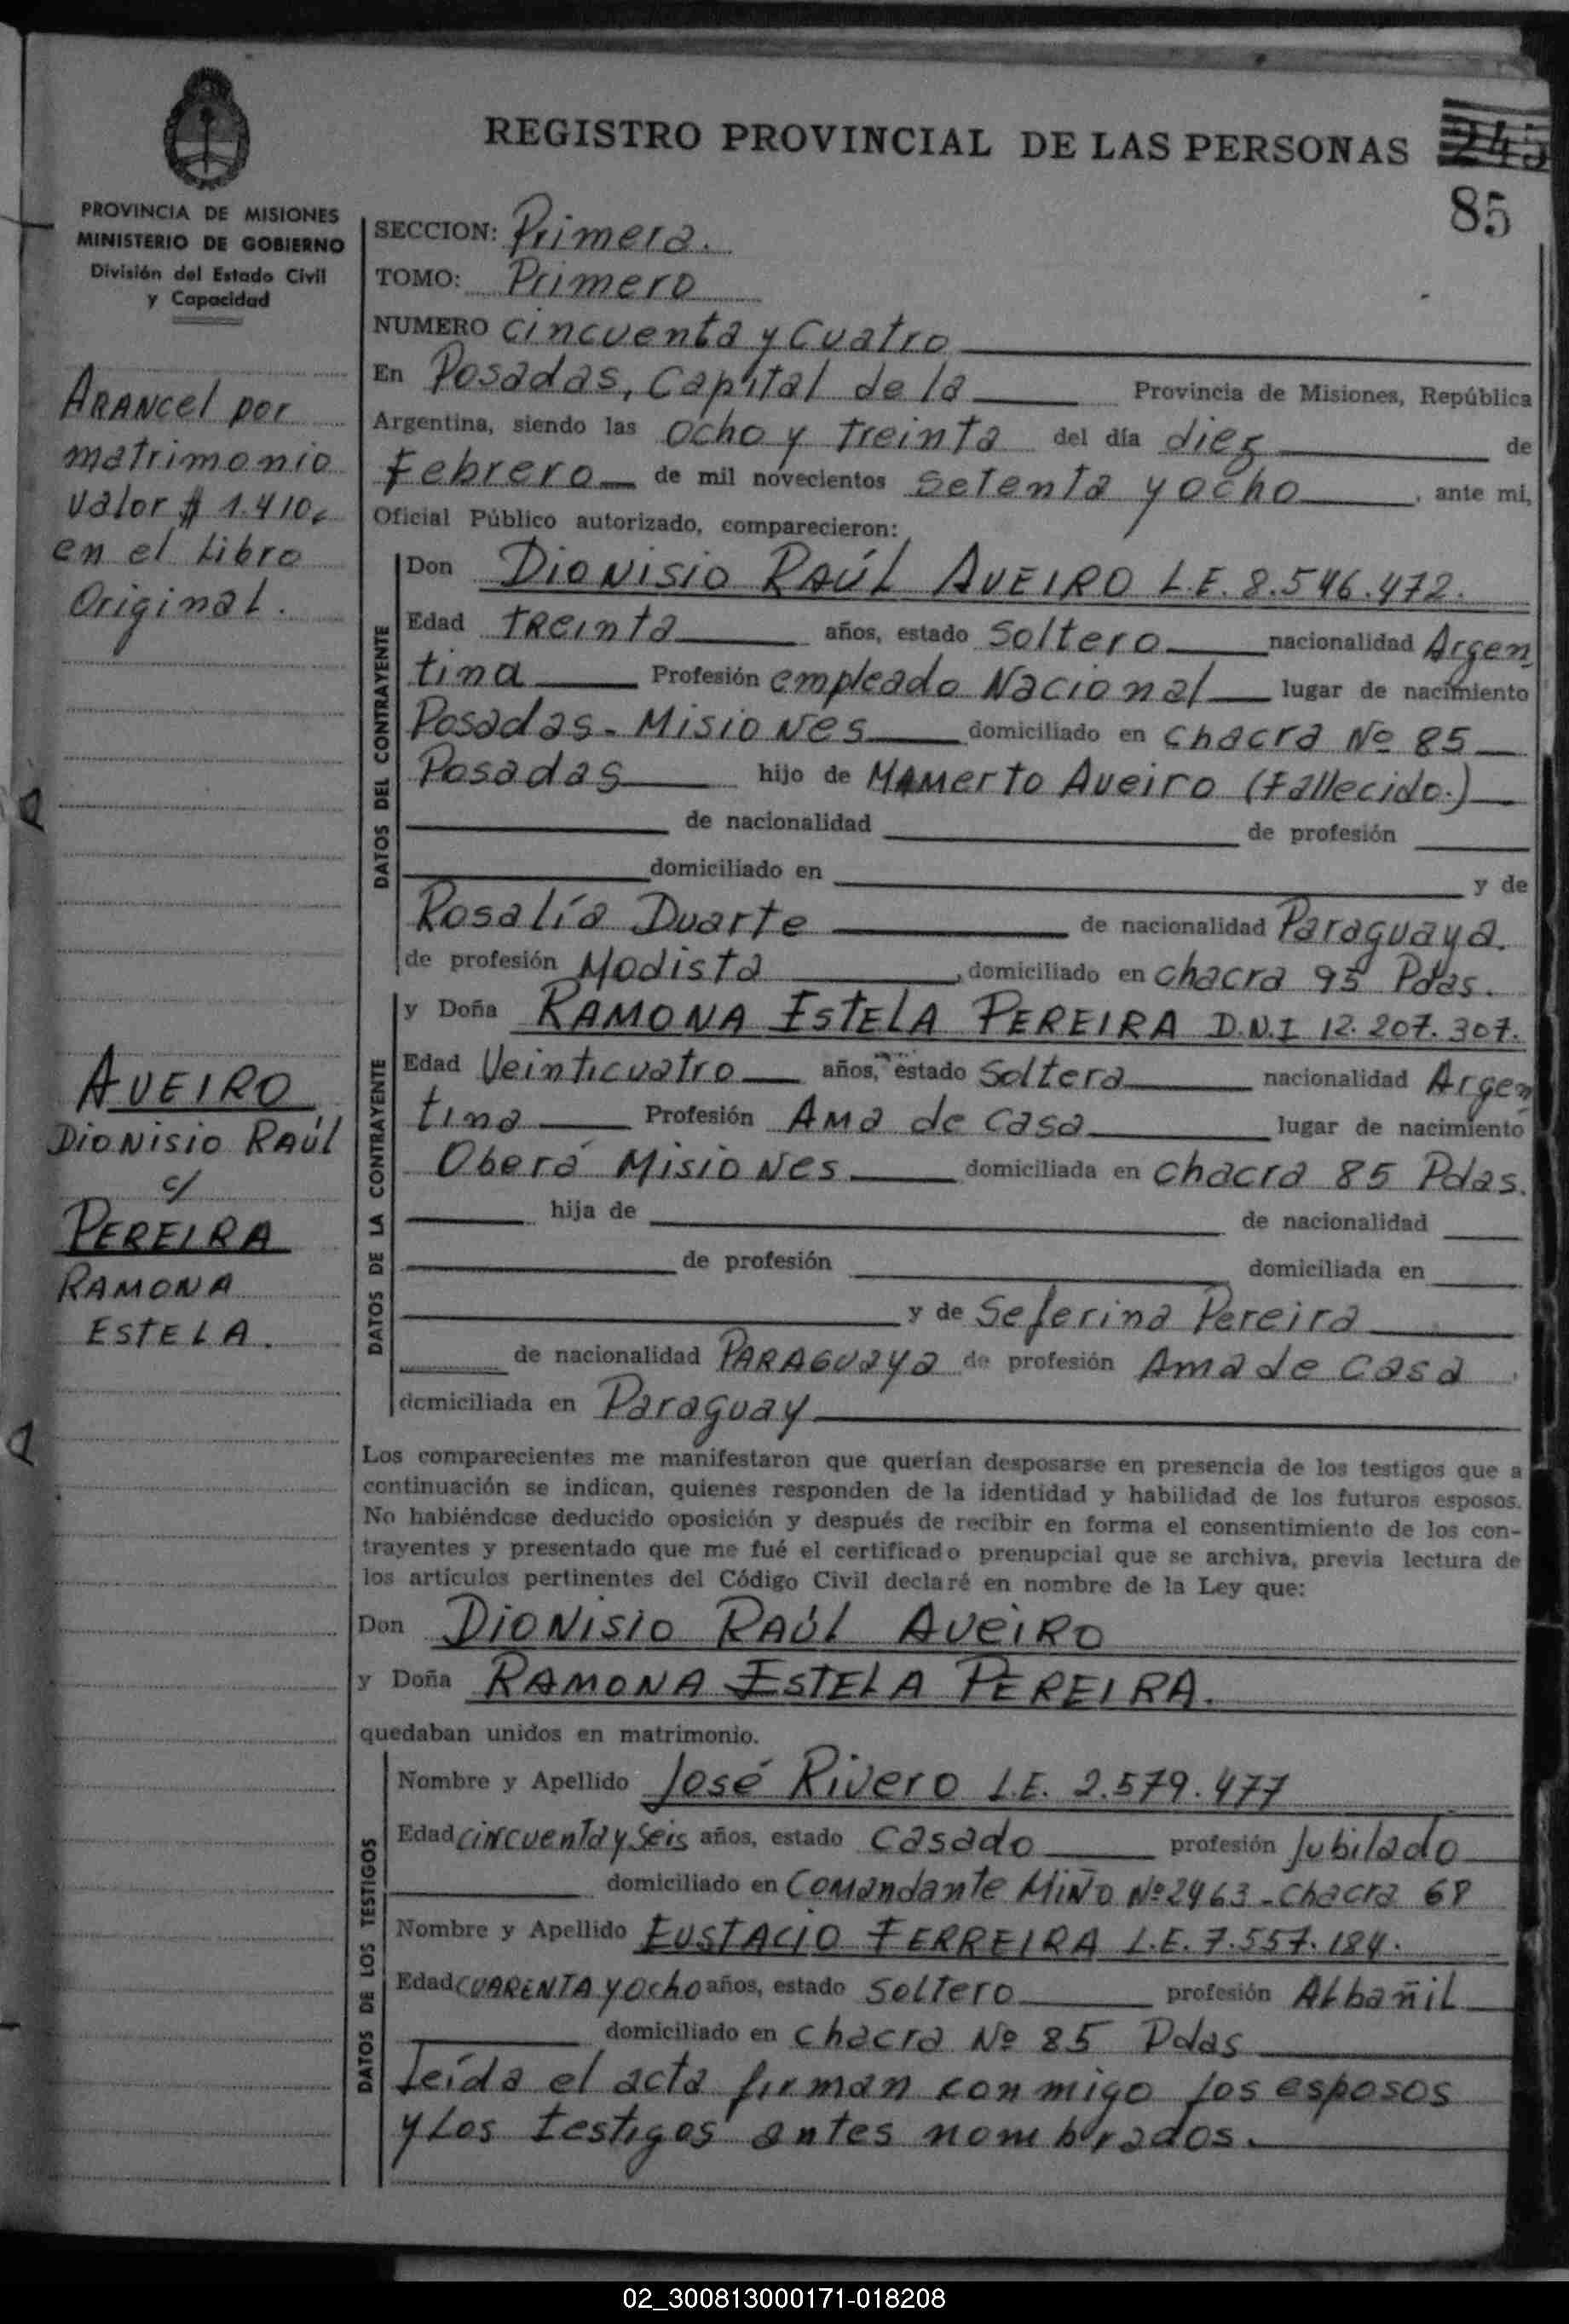 REGISTRO PROVINCIAL DE LAS PERSONAS 245
85
PROVINCIA DE MISIONES
MINISTERIO DE GOBIERNO
División del Estado Civil
y Capacidad
SECCION: Primera.
TOMO: Primero
NUMERO cincuenta y Cuatro
En Posadas, Capital de la Provincia de Misiones, República
Argentina, siendo las ocho y treinta del día diez de
Febrero de mil novecientos setenta y ocho, ante mi,
Oficial Público autorizado, comparecieron:
Arancel por
matrimonio
valor $ 1.410,
en el Libro
Original.
DATOS DEL CONTRAYENTE
Don Dionisio Raúl Aveiro L.E. 8.546.472.
Edad treinta años, estado soltero nacionalidad Argen
tina Profesión empleado Nacional lugar de nacimiento
Posadas - Misiones domiciliado en chacra Nº 85
Posadas hijo de Mamerto Aveiro (Fallecido.)
de nacionalidad de profesión
domiciliado en y de
Rosalía Duarte de nacionalidad Paraguaya.
de profesión Modista, domiciliado en chacra 95 Pdas.
AVEIRO
Dionisio Raúl
c/
PEREIRA
RAMONA
ESTELA.
DATOS DE LA CONTRAYENTE
y Doña RAMONA ESTELA PEREIRA D.N.I 12.207.307.
Edad Veinticuatro años, estado Soltera nacionalidad Argen
tina Profesión Ama de casa lugar de nacimiento
Oberá Misiones domiciliada en chacra 85 Pdas.
hija de de nacionalidad
de profesión domiciliada en
y de Seferina Pereira
de nacionalidad PARAGUAYA de profesión Ama de casa
domiciliada en Paraguay
Los comparecientes me manifestaron que querían desposarse en presencia de los testigos que a
continuación se indican, quienes responden de la identidad y habilidad de los futuros esposos.
No habiéndose deducido oposición y después de recibir en forma el consentimiento de los con-
trayentes y presentado que me fué el certificado prenupcial que se archiva, previa lectura de
los artículos pertinentes del Código Civil declaré en nombre de la Ley que:
Don Dionisio Raúl Aveiro
y Doña RAMONA ESTELA PEREIRA.
quedaban unidos en matrimonio.
DATOS DE LOS TESTIGOS
Nombre y Apellido José Rivero L.E. 2.579.477
Edad cincuenta y seis años, estado casado profesión Jubilado
domiciliado en Comandante Miño Nº 2463 - chacra 68
Nombre y Apellido EUSTACIO FERREIRA L.E. 7.557.184.
Edad CUARENTA y ocho años, estado soltero profesión Albañil
domiciliado en chacra Nº 85 Pdas
Leída el acta firman conmigo los esposos
y Los testigos antes nombrados.
02_300813000171-018208